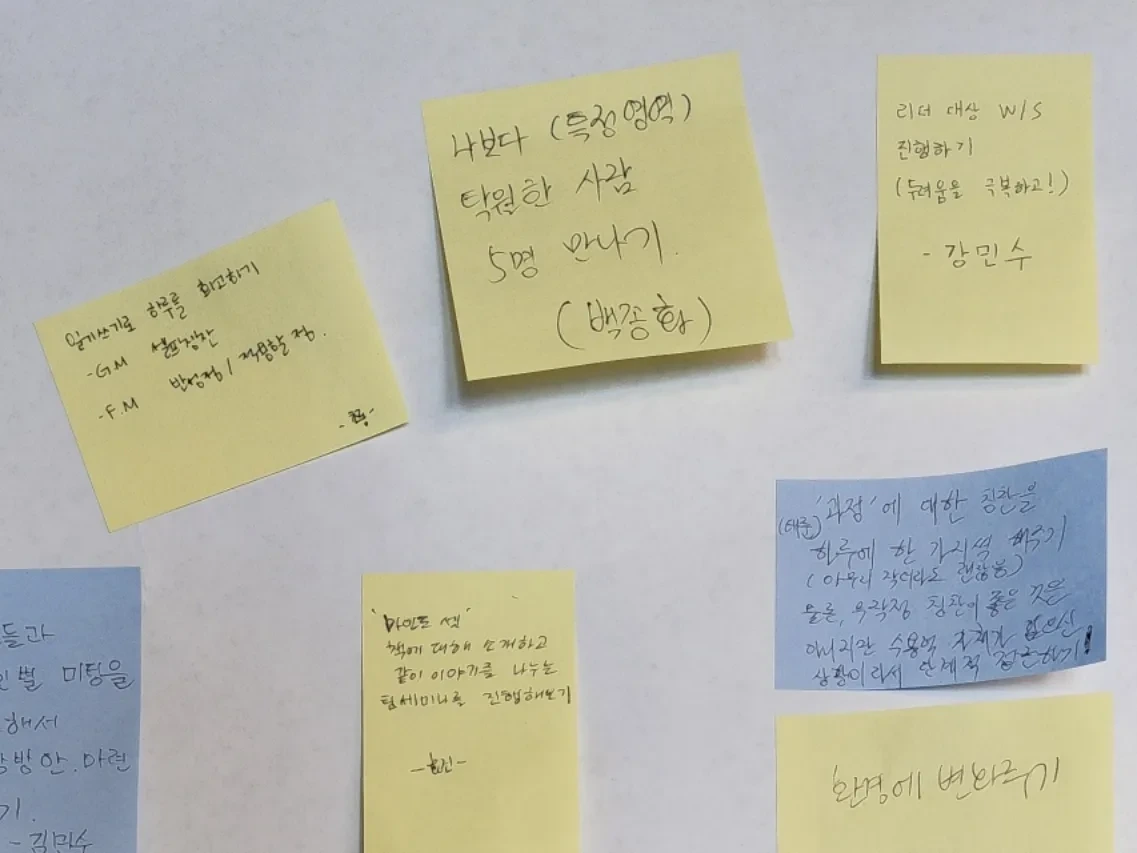 나보다 (특정영역)
탁월한 사람
5명 만나기.
(백종화)
리더 대상 W/S
진행하기
(두려움을 극복하고!)
- 강민수
일기쓰기로 하루를 회고하기
- G.M 셀프칭찬
- F.M 반성점 / 적용할 점.
'과정'에 대한 칭찬을
(태준)
하루에 한 가지씩 해주기
(아무리 작더라도 괜찮음)
물론, 무작정 칭찬이 좋은 것은
아니지만 수용력 자체가 없으신
상황이라서 단계적 접근하기!
들과
인별 미팅을
해서
방안.마련
기.
- 김민수
'마인드 셋'
책에 대해 소개하고
같이 이야기를 나누는
팀세미나를 진행해보기
- 효진 -
환경에 변화주기